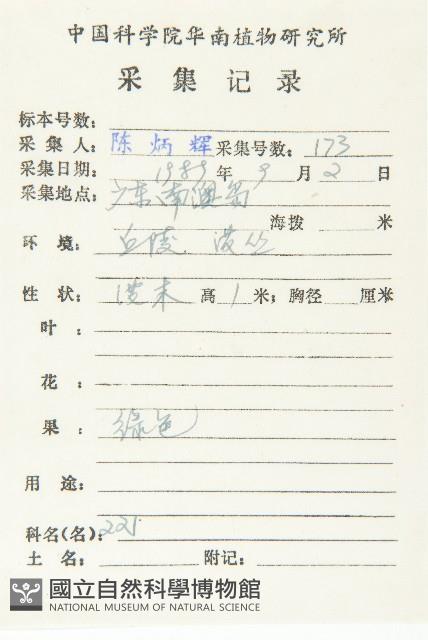 中国科学院华南植物研究所
采集记录
标本号数：
采集人：陈炳辉 采集号数：173
采集日期：1989年9月2日
采集地点：广东南澳岛
海拨 米
环境：丘陵 灌丛
性状：灌木 高1米；胸径 厘米
叶：
花：
果：绿色
用途：
科名(名)：221
土名： 附记：
國立自然科學博物館
NATIONAL MUSEUM OF NATURAL SCIENCE